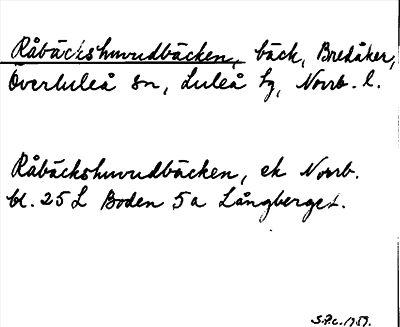 Råbäckshuvudbäcken, bäck, Bredåker,
Överluleå sn, Luleå tg, Norrb. l.
Råbäckshuvudbäcken, ek Norrb.
bl. 25 L Boden 5a Långberget.
S.P.C. 1959.